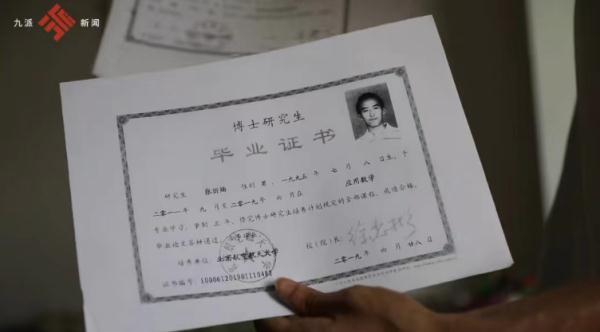 九派 新闻
博士研究生
毕业证书
研究生 张炘炀 性别 男，一九九五年 七 月 八 日生，于
二〇一一年 九 月至二〇一九年 六 月在 应用数学
专业学习，学制 三 年，修完博士研究生培养计划规定的全部课程，成绩合格，
毕业论文答辩通过。
培养单位：北京航空航天大学 校（院）长：徐惠彬
证书编号： 二〇一九年 六 月 廿八 日